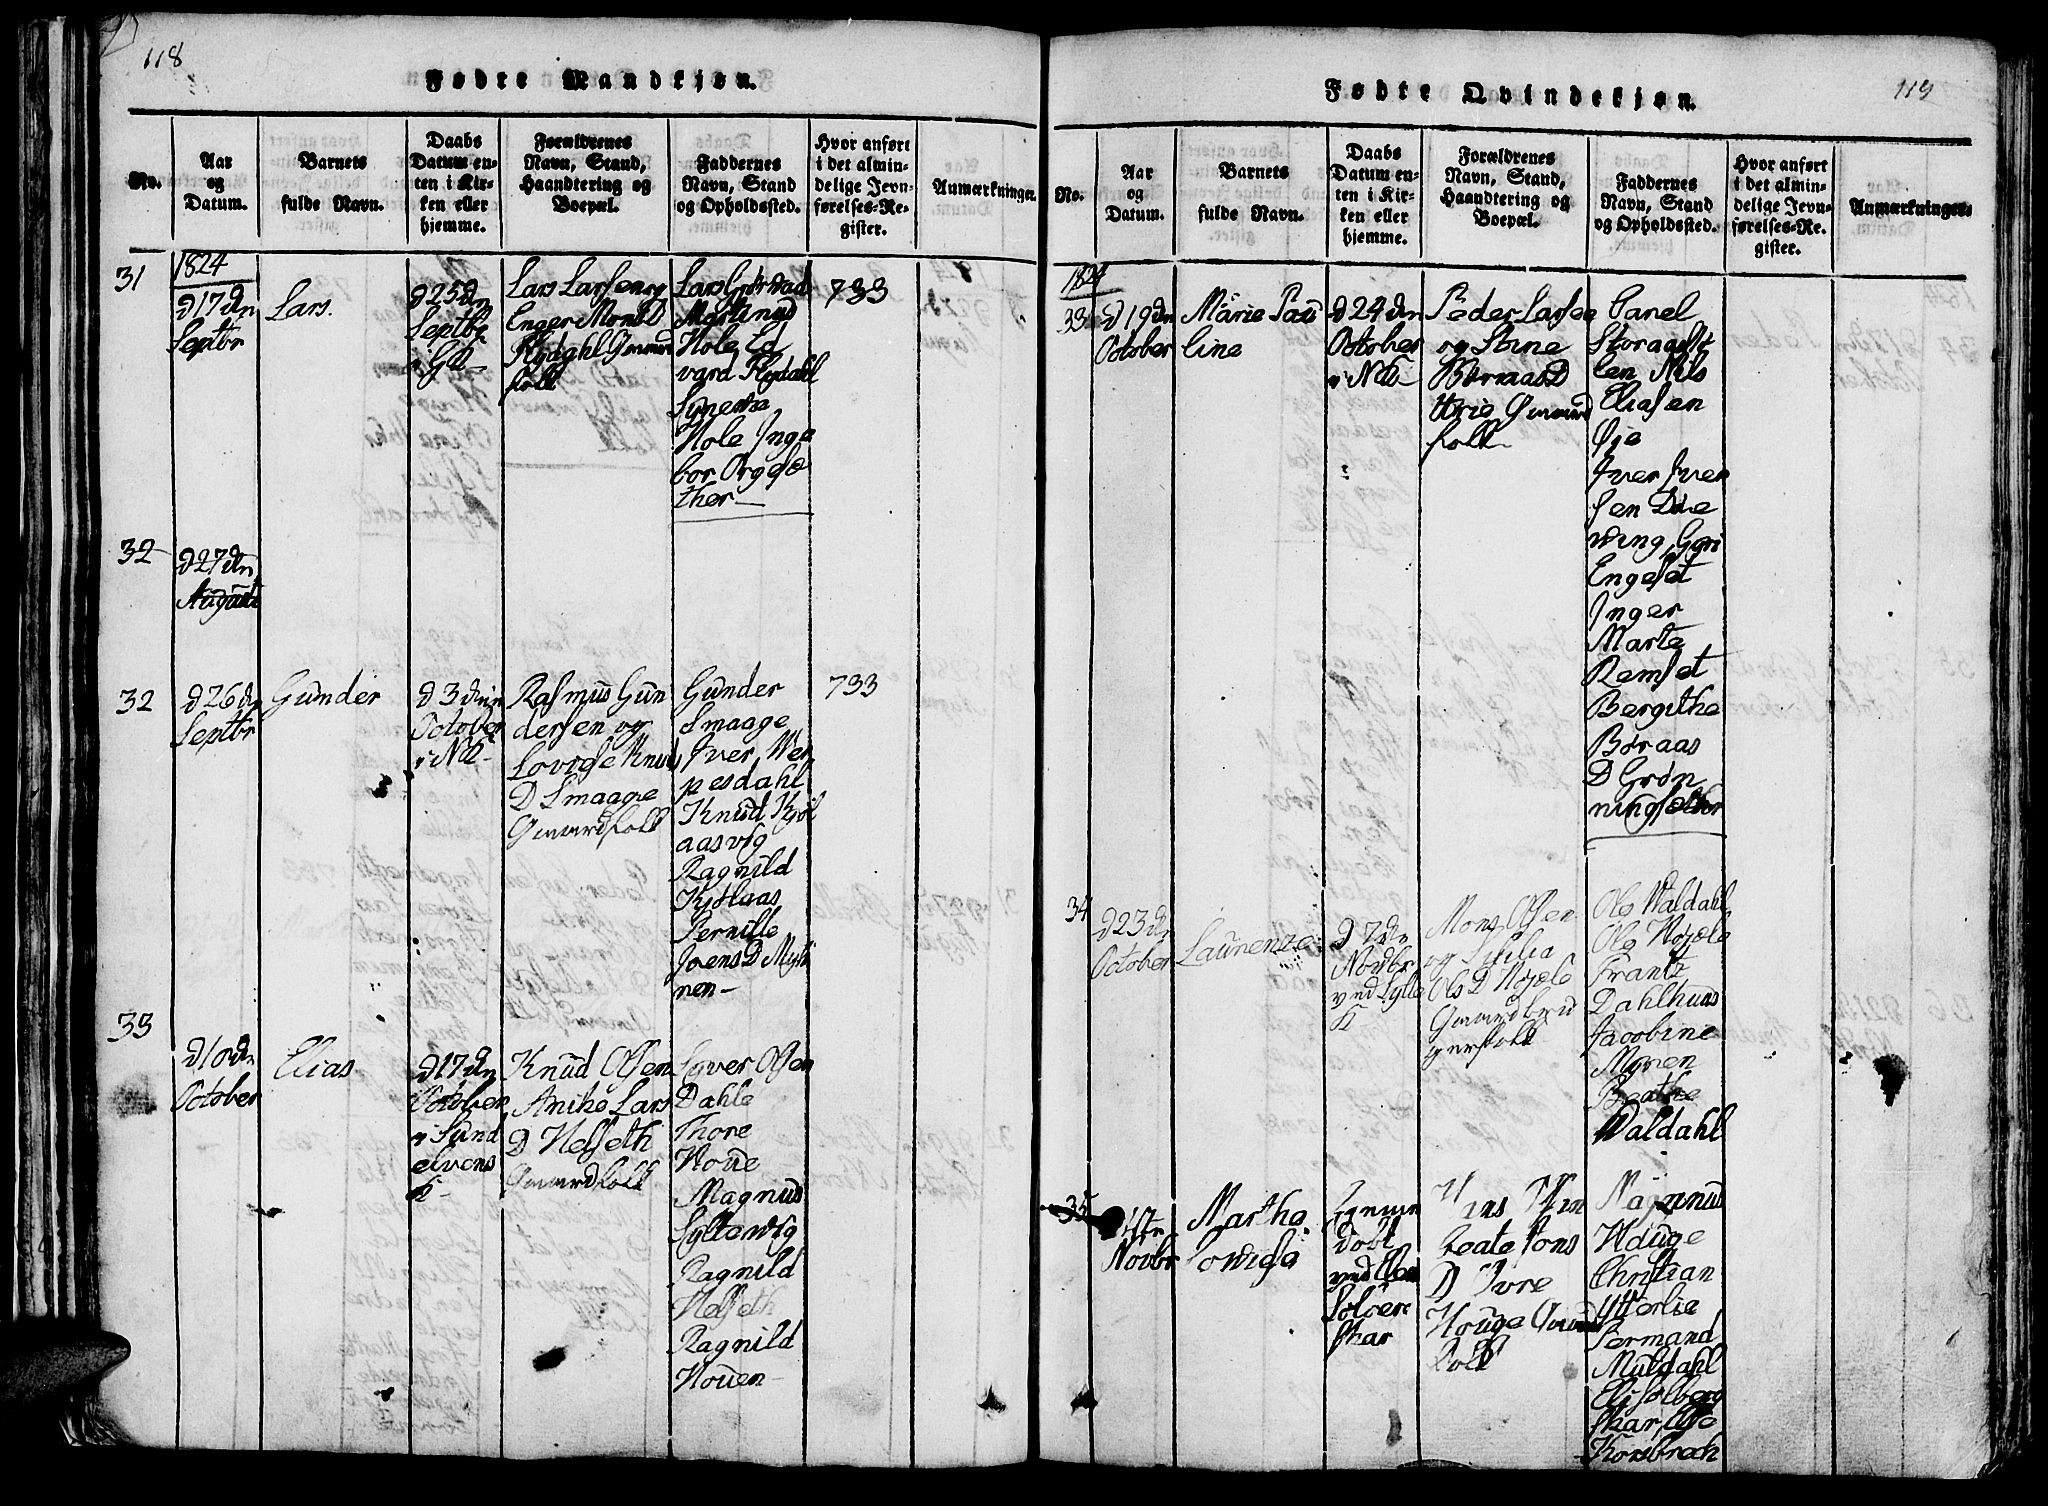 118
Fødte Mandkjøn.
No.
Aar
og
Datum.
Barnets
fulde Navn.
Daabs
Datum en-
ten i Kir-
ken eller
hjemme.
Forældrenes
Navn, Stand,
Haandtering og
Boepæl.
Faddernes
Navn, Stand
og Opholdssted.
Hvor anført
i det almin-
delige Jevn-
førelses-Re-
gister.
Anmærkninger.
31
1824
d 17dn
Septbr
Lars.
d 25dn
Septbr
i
Lars Larsen og
Enger Mons D
Gaard
folk
Lars
Hole Ed
vard Flydahl
Hole Inge
bor
ther
733
32
d 27dn
August
32
d 26dn
Septbr
Gunder
d 3dn
October
i NK
Rasmus Gun
dersen og
Lovise Knud
D Smaage
Gaardfolk
Gunder
Smaage
Iver Wer
pesdahl
Knud Kjøl
aasvig
Ragnild
Kjølaas
Pernille
Joens D Myh
nen
733
33
d 10dn
October
Elias
d 17dn
October
i Sund
elvens
K
Knud Olsen
Anike Lars
D Helseth
Gaardfolk
Siver Olsen
Dahle
Thore
Houe
Magnus
Syltevig
Ragnild
Helseth
Ragnild
Houen
119
Fødte Qvindekjøn.
No.
Aar
og
Datum.
Barnets
fulde Navn.
Daabs
Datum en-
ten i Kir-
ken eller
hjemme.
Forældrenes
Navn, Stand,
Haandtering og
Boepæl.
Faddernes
Navn, Stand
og Opholdssted.
Hvor anført
i det almin-
delige Jevn-
førelses-Re-
gister.
Anmærkninger.
1824
33
d 19dn
October
Marie Pau
line
d 24dn
October
i NK
Peder Larsen
og Stine
Børaas D
Gaard
folk
Carel
Storaas
len Nils
Eliasen
Øje
Iver Iver
sen Døe
ving Guri
Engeset
Inger
Marte
Remset
Bergithe
Børaas
D Grøn
ningsæther
34
d 23dn
October
Laurenze
d 7dn
Novbr
ved Sylte
K
Mons Olsen
og Sisilia
Ols D Højele
Gaardbru
gerfolk
Ole Waldahl
Ole Højele
Frantz
Dahlhuus
Jacobine
Myren
Beathe
Waldahl
35
Novbr
Martha
Lovisa
Hjemme
døbt
ved
Solver
skar
Beate Jons
D Ivre
Houge Gaard
folk
Magnus
Hauge
Christian
Ytterlie
Permand
Muldahl
skar Else
Korsbrech